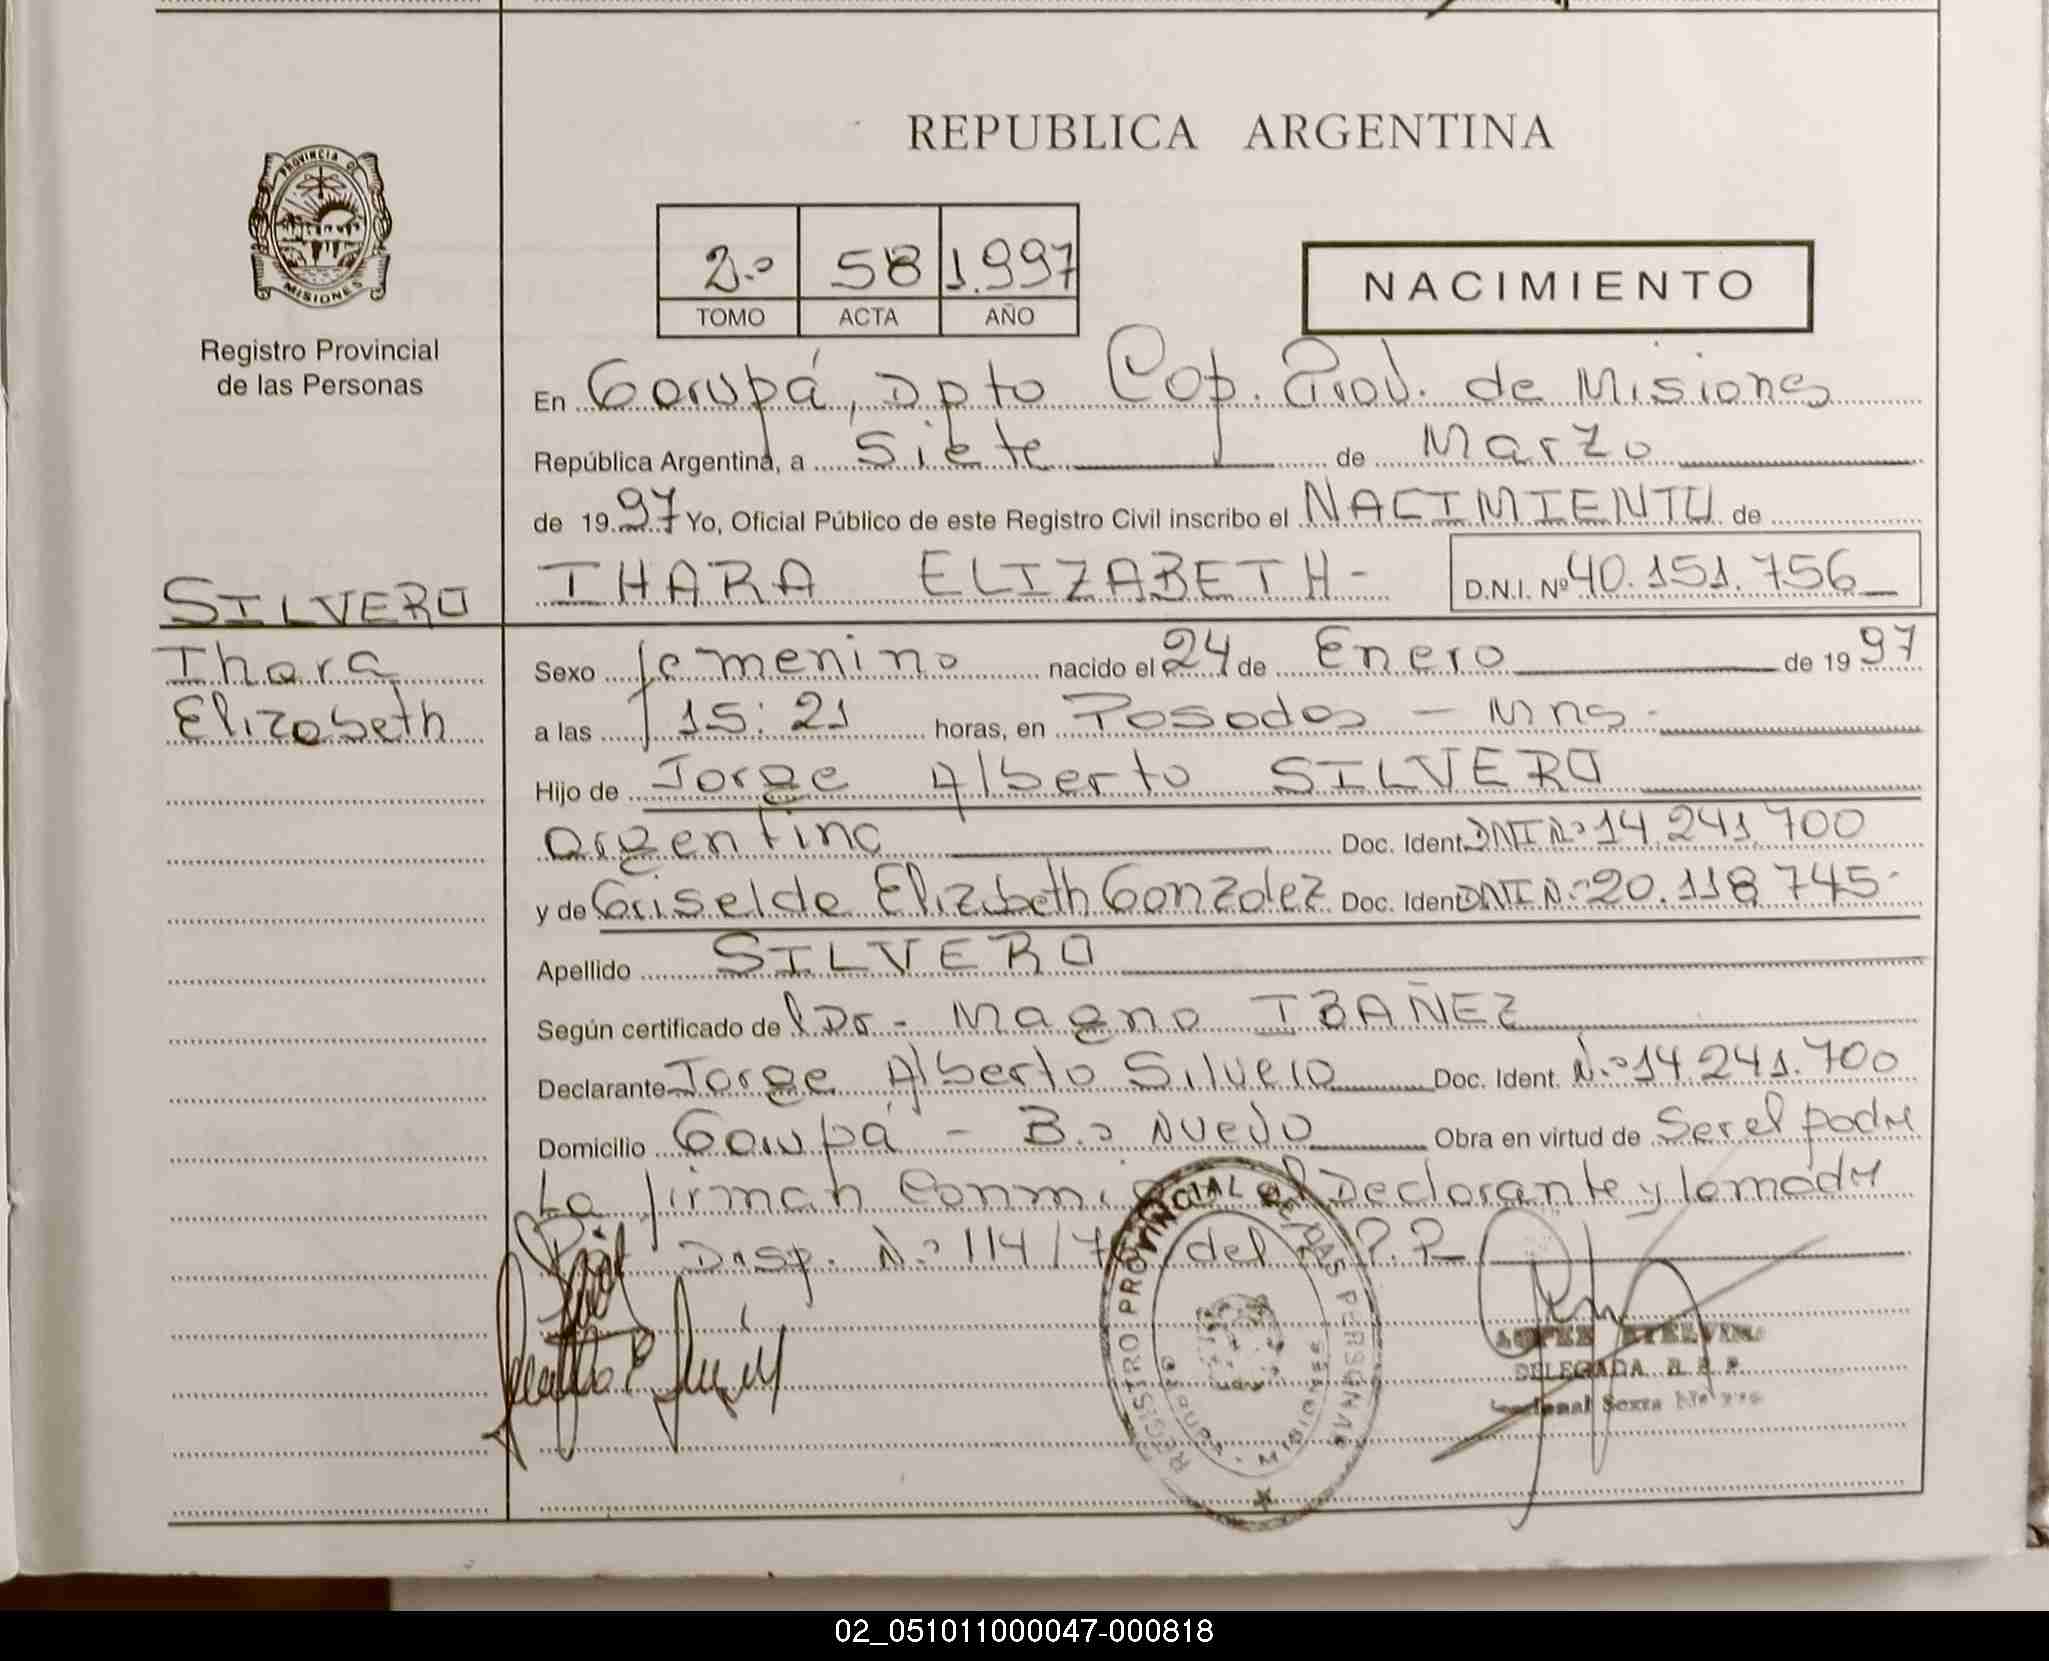 REPUBLICA ARGENTINA
PROVINCIA DE
MISIONES
Registro Provincial
de las Personas
2.º 58 1.997
TOMO ACTA AÑO
NACIMIENTO
En Garupá, Dpto Cap. Prov. de Misiones
República Argentina, a siete de Marzo
de 1997 Yo, Oficial Público de este Registro Civil inscribo el NACIMIENTO de
IHARA ELIZABETH- D.N.I. Nº 40.151.756
SILVERO
Ihara
Elizabeth
Sexo femenino nacido el 24 de Enero de 1997
a las 15:21 horas, en Posadas - Mns.
Hijo de Jorge Alberto SILVERO
argentino Doc. Ident. DNI N.º 14.241.700
y de Griselda Elizabeth Gonzalez Doc. Ident. DNI N.º 20.118.745.
Apellido SILVERO
Según certificado de Dr. Magno IBAÑEZ
Declarante Jorge Alberto Silvero Doc. Ident. N.º 14.241.700
Domicilio Garupá - B.º Nuevo Obra en virtud de Ser el padre
La firman Conmigo el Declarante y la madre
Disp. N.º 114/7 del P.P.
REGISTRO PROVINCIAL DE LAS PERSONAS
MISIONES
LOPEZ ETELVINA
DELEGADA R. P. P.
02_051011000047-000818